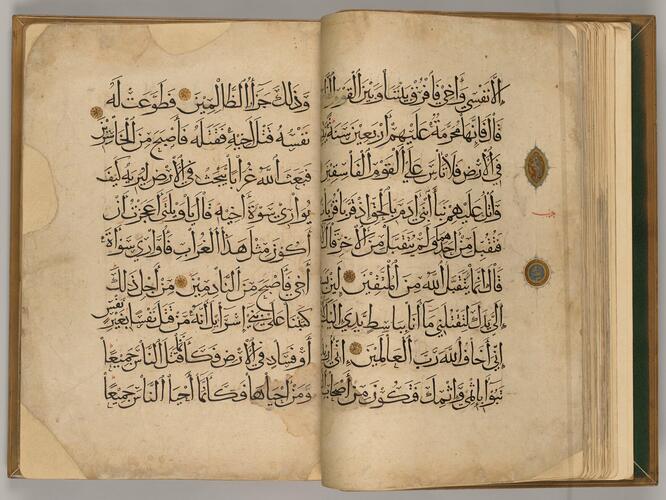 إِلَّا نَفْسِي وَأَخِي فَافْرُقْ بَيْنَنَا وَبَيْنَ الْقَوْمِ
قَالَ فَإِنَّهَا مُحَرَّمَةٌ عَلَيْهِمْ أَرْبَعِينَ سَنَةً
فِي الْأَرْضِ فَلَا تَأْسَ عَلَى الْقَوْمِ الْفَاسِقِينَ
وَاتْلُ عَلَيْهِمْ نَبَأَ ابْنَيْ آدَمَ بِالْحَقِّ إِذْ قَرَّبَا
فَتُقُبِّلَ مِنْ أَحَدِهِمَا وَلَمْ يُتَقَبَّلْ مِنَ الْآخَرِ قَالَ
قَالَ إِنَّمَا يَتَقَبَّلُ اللَّهُ مِنَ الْمُتَّقِينَ لَئِنْ
إِلَيَّ يَدَكَ لِتَقْتُلَنِي مَا أَنَا بِبَاسِطٍ يَدِيَ
إِنِّي أَخَافُ اللَّهَ رَبَّ الْعَالَمِينَ إِنِّي
تَبُوءَ بِإِثْمِي وَإِثْمِكَ فَتَكُونَ مِنْ أَصْحَابِ
وَذَلِكَ جَزَاءُ الظَّالِمِينَ فَطَوَّعَتْ لَهُ
نَفْسُهُ قَتْلَ أَخِيهِ فَقَتَلَهُ فَأَصْبَحَ مِنَ الْخَاسِرِينَ
فَبَعَثَ اللَّهُ غُرَابًا يَبْحَثُ فِي الْأَرْضِ لِيُرِيَهُ كَيْفَ
يُوَارِي سَوْأَةَ أَخِيهِ قَالَ يَا وَيْلَتَى أَعَجَزْتُ أَنْ
أَكُونَ مِثْلَ هَذَا الْغُرَابِ فَأُوَارِيَ سَوْأَةَ
أَخِي فَأَصْبَحَ مِنَ النَّادِمِينَ مِنْ أَجْلِ ذَلِكَ
كَتَبْنَا عَلَى بَنِي إِسْرَائِيلَ أَنَّهُ مَنْ قَتَلَ نَفْسًا بِغَيْرِ نَفْسٍ
أَوْ فَسَادٍ فِي الْأَرْضِ فَكَأَنَّمَا قَتَلَ النَّاسَ جَمِيعًا
وَمَنْ أَحْيَاهَا فَكَأَنَّمَا أَحْيَا النَّاسَ جَمِيعًا